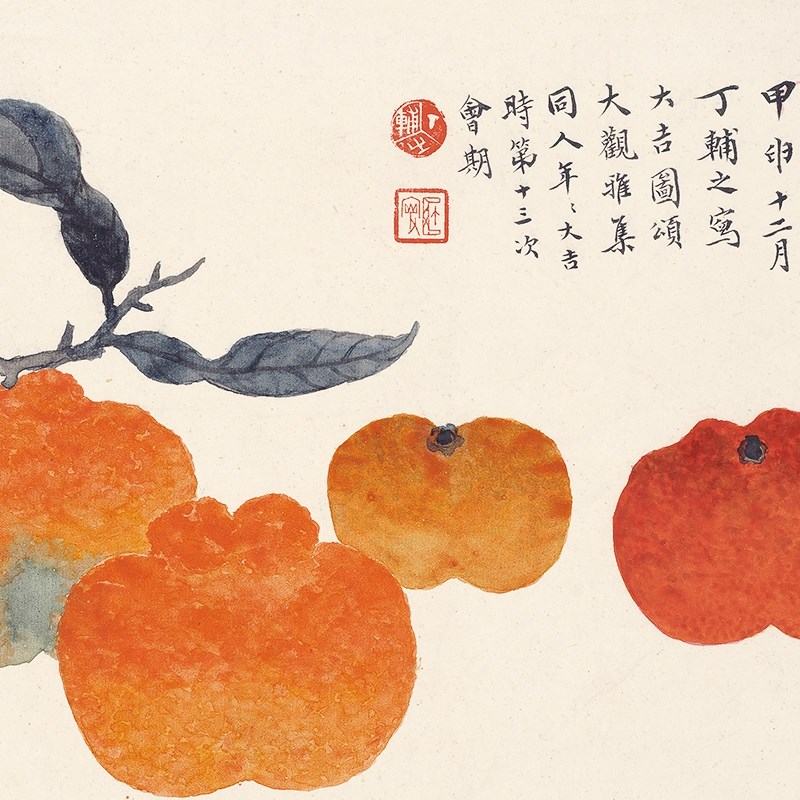 甲申十二月
丁輔之寫
大吉圖頌
大觀雅集
同人年〻大吉
時第十三次
會期
輔之